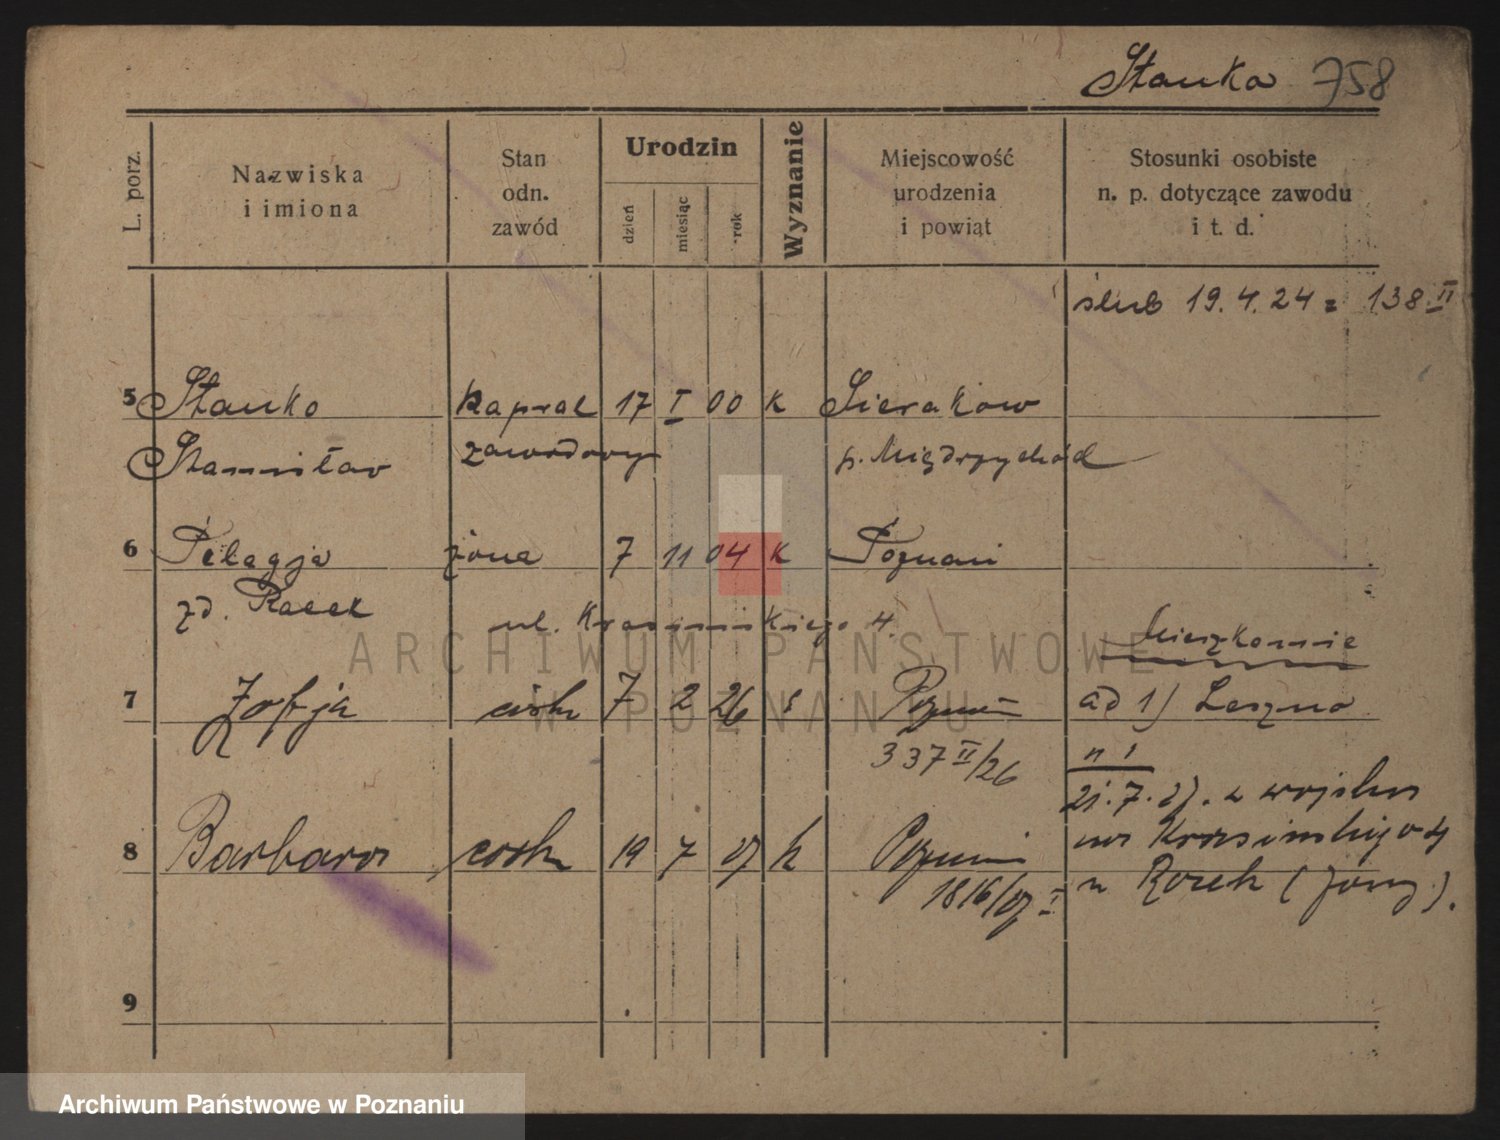 Stanka 758
L. porz.
Nazwiska
i imiona
Stan
odn.
zawód
Urodzin
dzień
miesiąc
rok
Wyznanie
Miejscowość
urodzenia
i powiąt
Stosunki osobiste
n. p. dotyczące zawodu
i t. d.
ślub 19.4.24 = 138.II
5 Stanko kapral 17 I 00 K Sieraków
Stanisław zawodowy p. Międzychód
6 Pelagja żona 7 11 04 K Poznań
zd. ul. Krasińskiego 4.
Mieszkanie
7 Zofja córka 7 2 26 Poznań ad 1) Leszno
337 II/26
21.7.27. z wojska
8 Barbara córka 19 7 27 k Poznań na Krasińskiego 4
1816/27 I u (żony).
9
ARCHIWUM PAŃSTWOWE
W POZNANIU
Archiwum Państwowe w Poznaniu